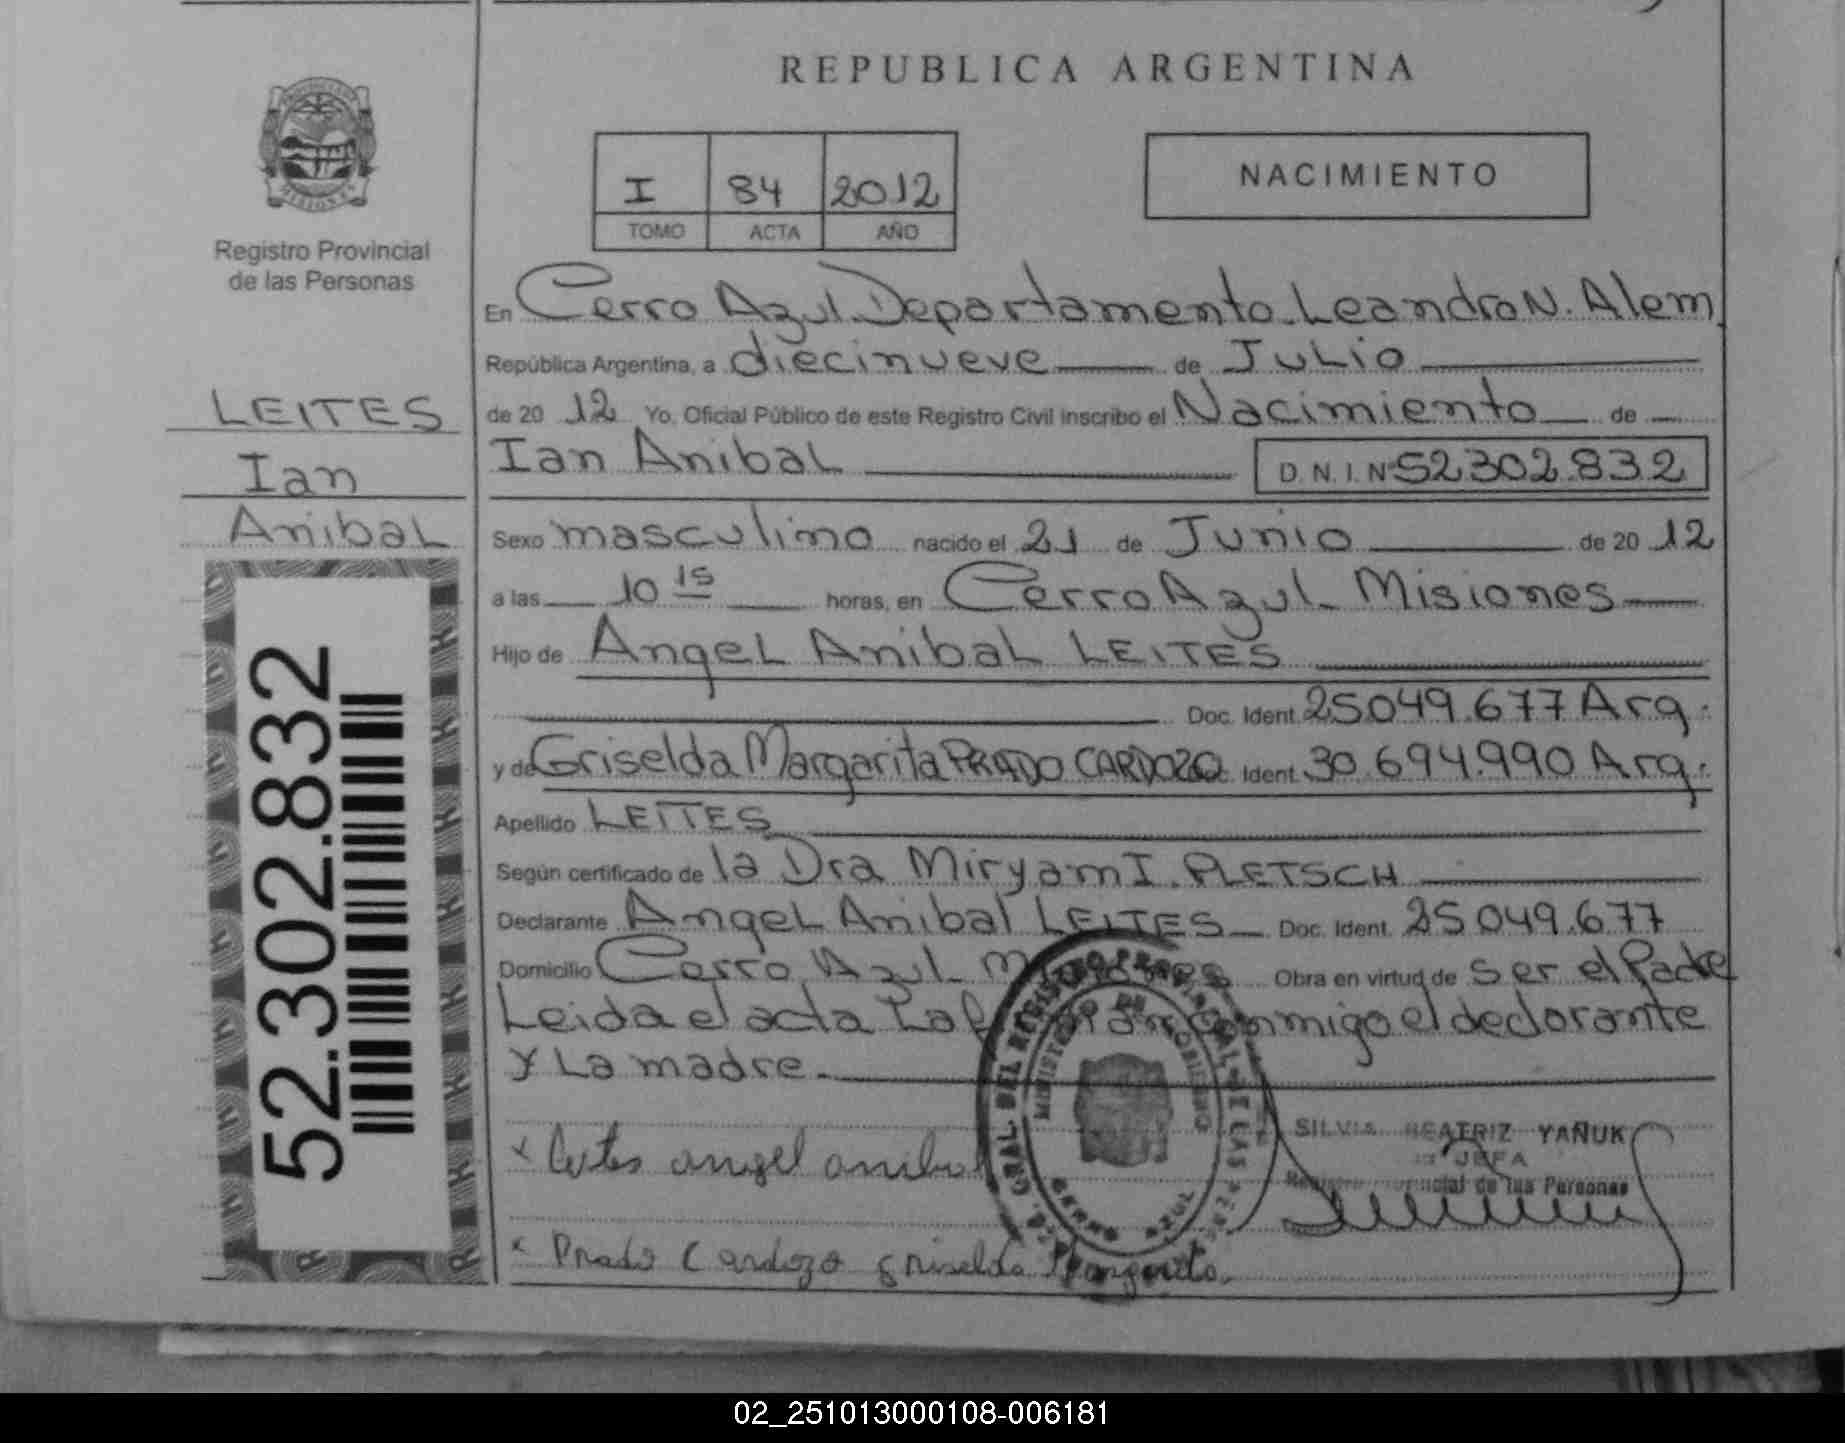 REPUBLICA ARGENTINA
NACIMIENTO
I 84 2012
TOMO ACTA AÑO
Registro Provincial
de las Personas
LEITES
Ian
Anibal
52.302.832
En Cerro Azul Departamento Leandro N. Alem
República Argentina, a diecinueve de Julio
de 20 12 Yo, Oficial Público de este Registro Civil inscribo el Nacimiento de
Ian Anibal D.N.I.Nº 52302.832
Sexo masculino nacido el 21 de Junio de 20 12
a las 10 15 horas, en Cerro Azul Misiones
Hijo de Angel Anibal LEITES
Doc. Ident. 25.049.677 Arg.
y de Griselda Margarita PRADO CARDOZO Doc. Ident. 30.694.990 Arg.
Apellido LEITES
Según certificado de la Dra Miryam I. PLETSCH
Declarante Angel Anibal LEITES Doc. Ident. 25.049.677
Domicilio Cerro Azul Misiones Obra en virtud de ser el Padre
Leida el acta conmigo el declarante
y La madre.
x Leites angel anibal
SILVIA BEATRIZ YAÑUK
JEFA
Registro Provincial de las Personas
x Prado Cardozo Griselda Margarita.
GRAL. DEL REGISTRO PROVINCIAL DE LAS
MINISTERIO DE GOBIERNO
CERRO AZUL
02_251013000108-006181